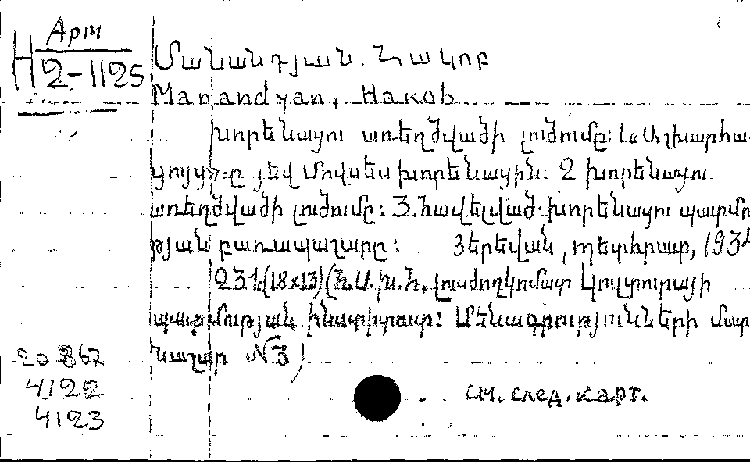 Арм
H 2-1125
Մանանդյան. Հակոբ
Manandyan, Hakob
Խորենացու առեղծվածի լուծումը: 1. Աշխարհա-
ցույց-ը յեվ Մովսես Խորենացին. 2 Խորենացու
առեղծվածի լուծումը: 3. հավելված. Խորենացու պատմու
թյան բառապաշարը: Յերեվան, պետհրատ, 1934
231 (18x13) (Հ.Ս.Խ.Հ. լուսժողկոմատ Կուլտուրայի
պատմության ինստիտուտ: Մենագրությունների մատ
նաշար N3)
20 867
4122
4123
см. след. карт.